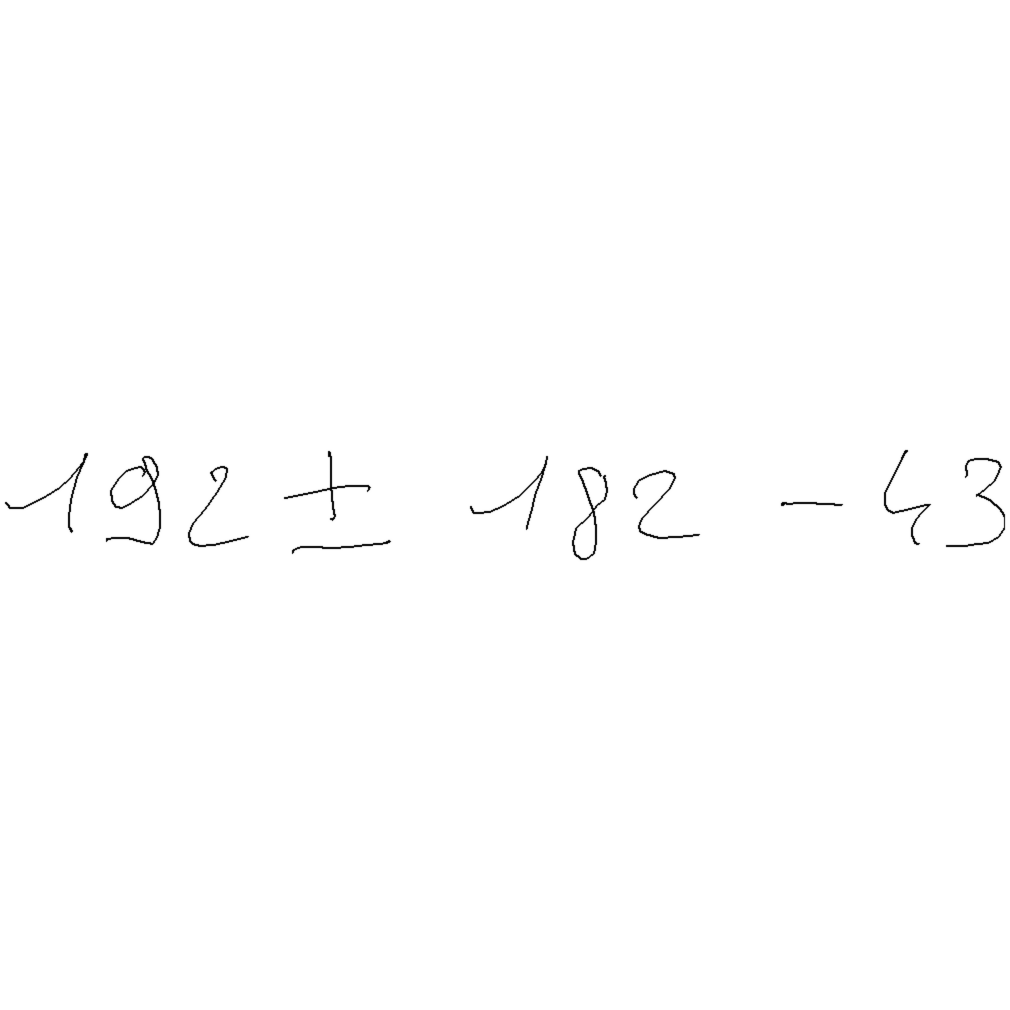 192 ± 182 - 43